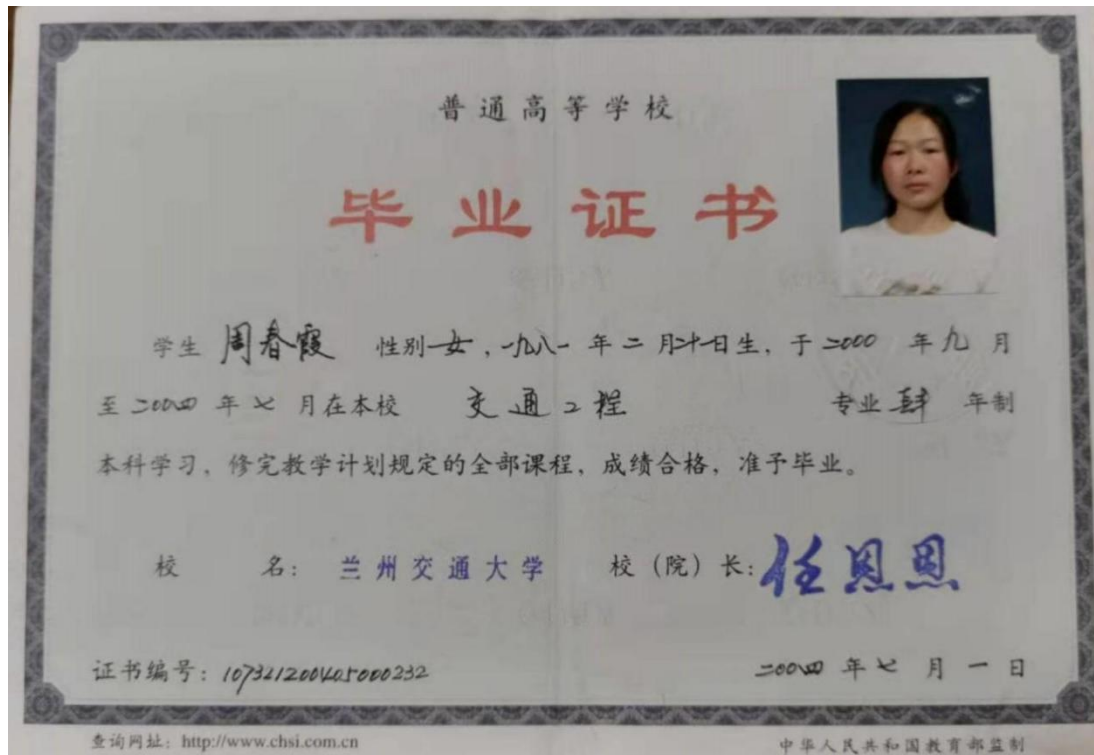 普通高等学校
毕业证书
学生 周春霞 性别 女，一九八一 年 二 月二十日生，于 二000 年 九 月
至 二00四 年 七 月在本校 交通工程 专业 肆 年制
本科学习，修完教学计划规定的全部课程，成绩合格，准予毕业。
校 名：兰州交通大学 校（院）长：任恩恩
证书编号：107321200405000232 二00四 年 七 月 一 日
查询网址：http://www.chsi.com.cn 中华人民共和国教育部监制